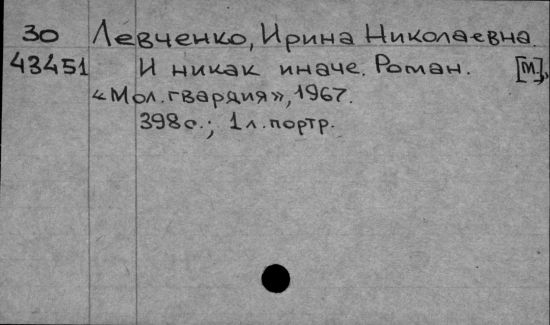 30 Левченко, Ирина Николаевна.
43451 И никак иначе. Роман. [М],
«Мол. гвардия», 1967.
398 с.; 1 л. портр.